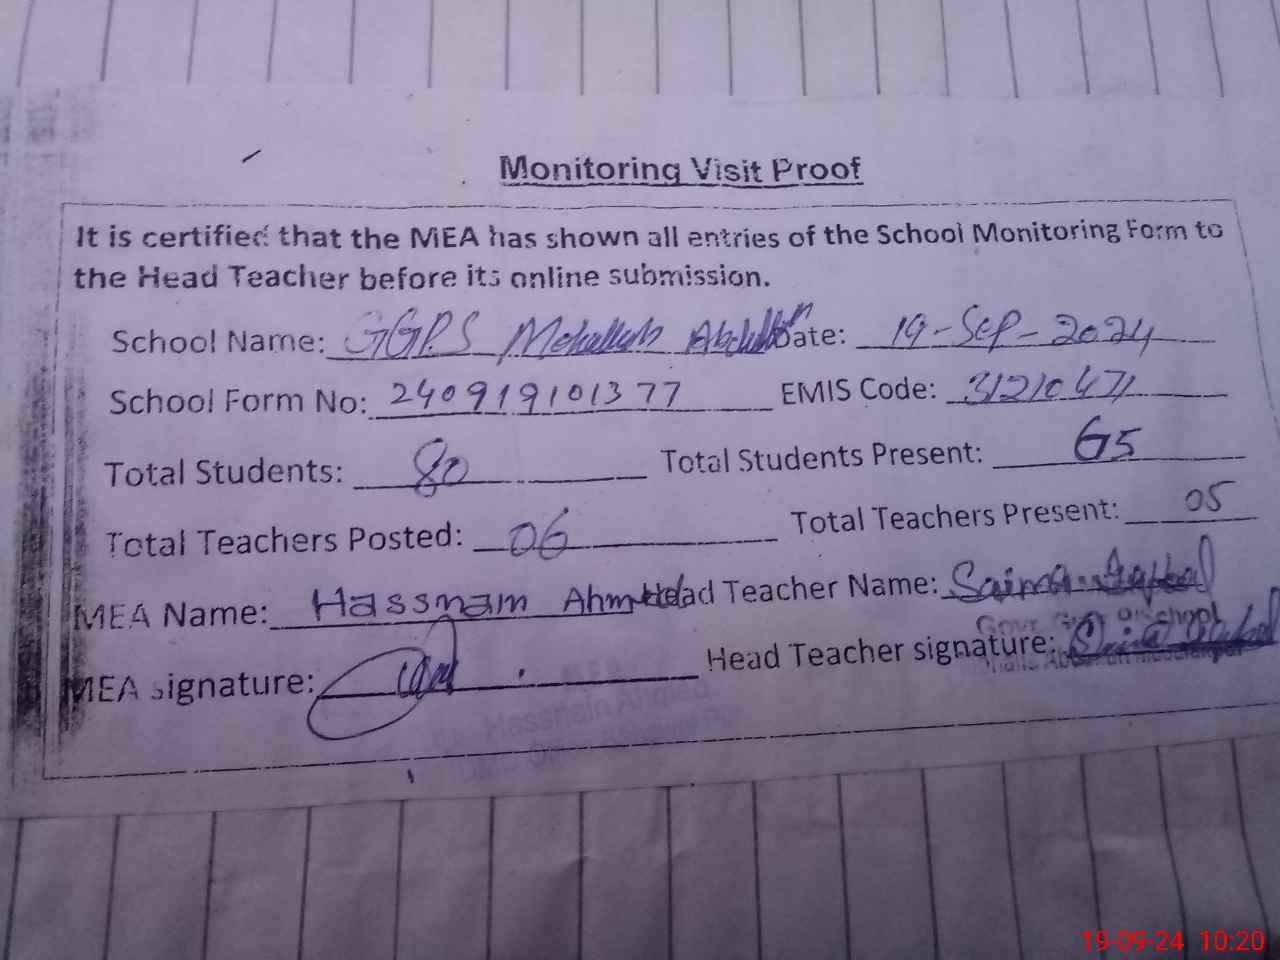 Monitoring Visit Proof
It is certified that the MEA has shown all entries of the School Monitoring Form to
the Head Teacher before its online submission.
School Name: GGPS Mohallah Date: 19-Sep-2024
School Form No: 240919101377 EMIS Code: 31210471
Total Students: 80 Total Students Present: 65
Total Teachers Posted: 06 Total Teachers Present: 05
MEA Name: Hassnain Ahmed Head Teacher Name: Saima
Govt. school
MEA signature: Head Teacher signature:
MEA
Hassnain Ahmed
19-09-24 10:20